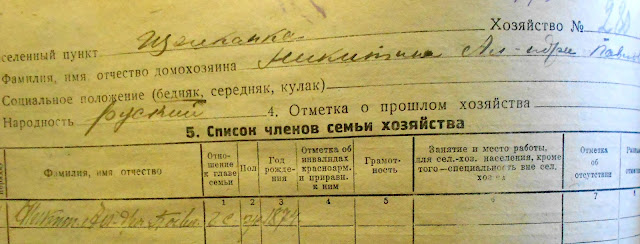 Хозяйство № 280
селенный пункт Щелканка
Фамилия, имя отчество домохозяина Никитин Ал-ндр Павл
Социальное положение (бедняк, середняк, кулак)
Народность русский 4. Отметка о прошлом хозяйства
5. Список членов семьи хозяйства
Фамилия, имя отчество
Отно-
шение
к главе
семьи
Пол
Год
рожде-
ния
Отметка об
инвалидах
красноарм.
и приравн.
к ним
Грамот-
ность
Занятие и место работы,
для сел.-хоз. населения, кроме
того—специальность вне сел.
хоз-ва
Отметка
об
отсутствии
1 2 3 4 5 6 7
Никитин